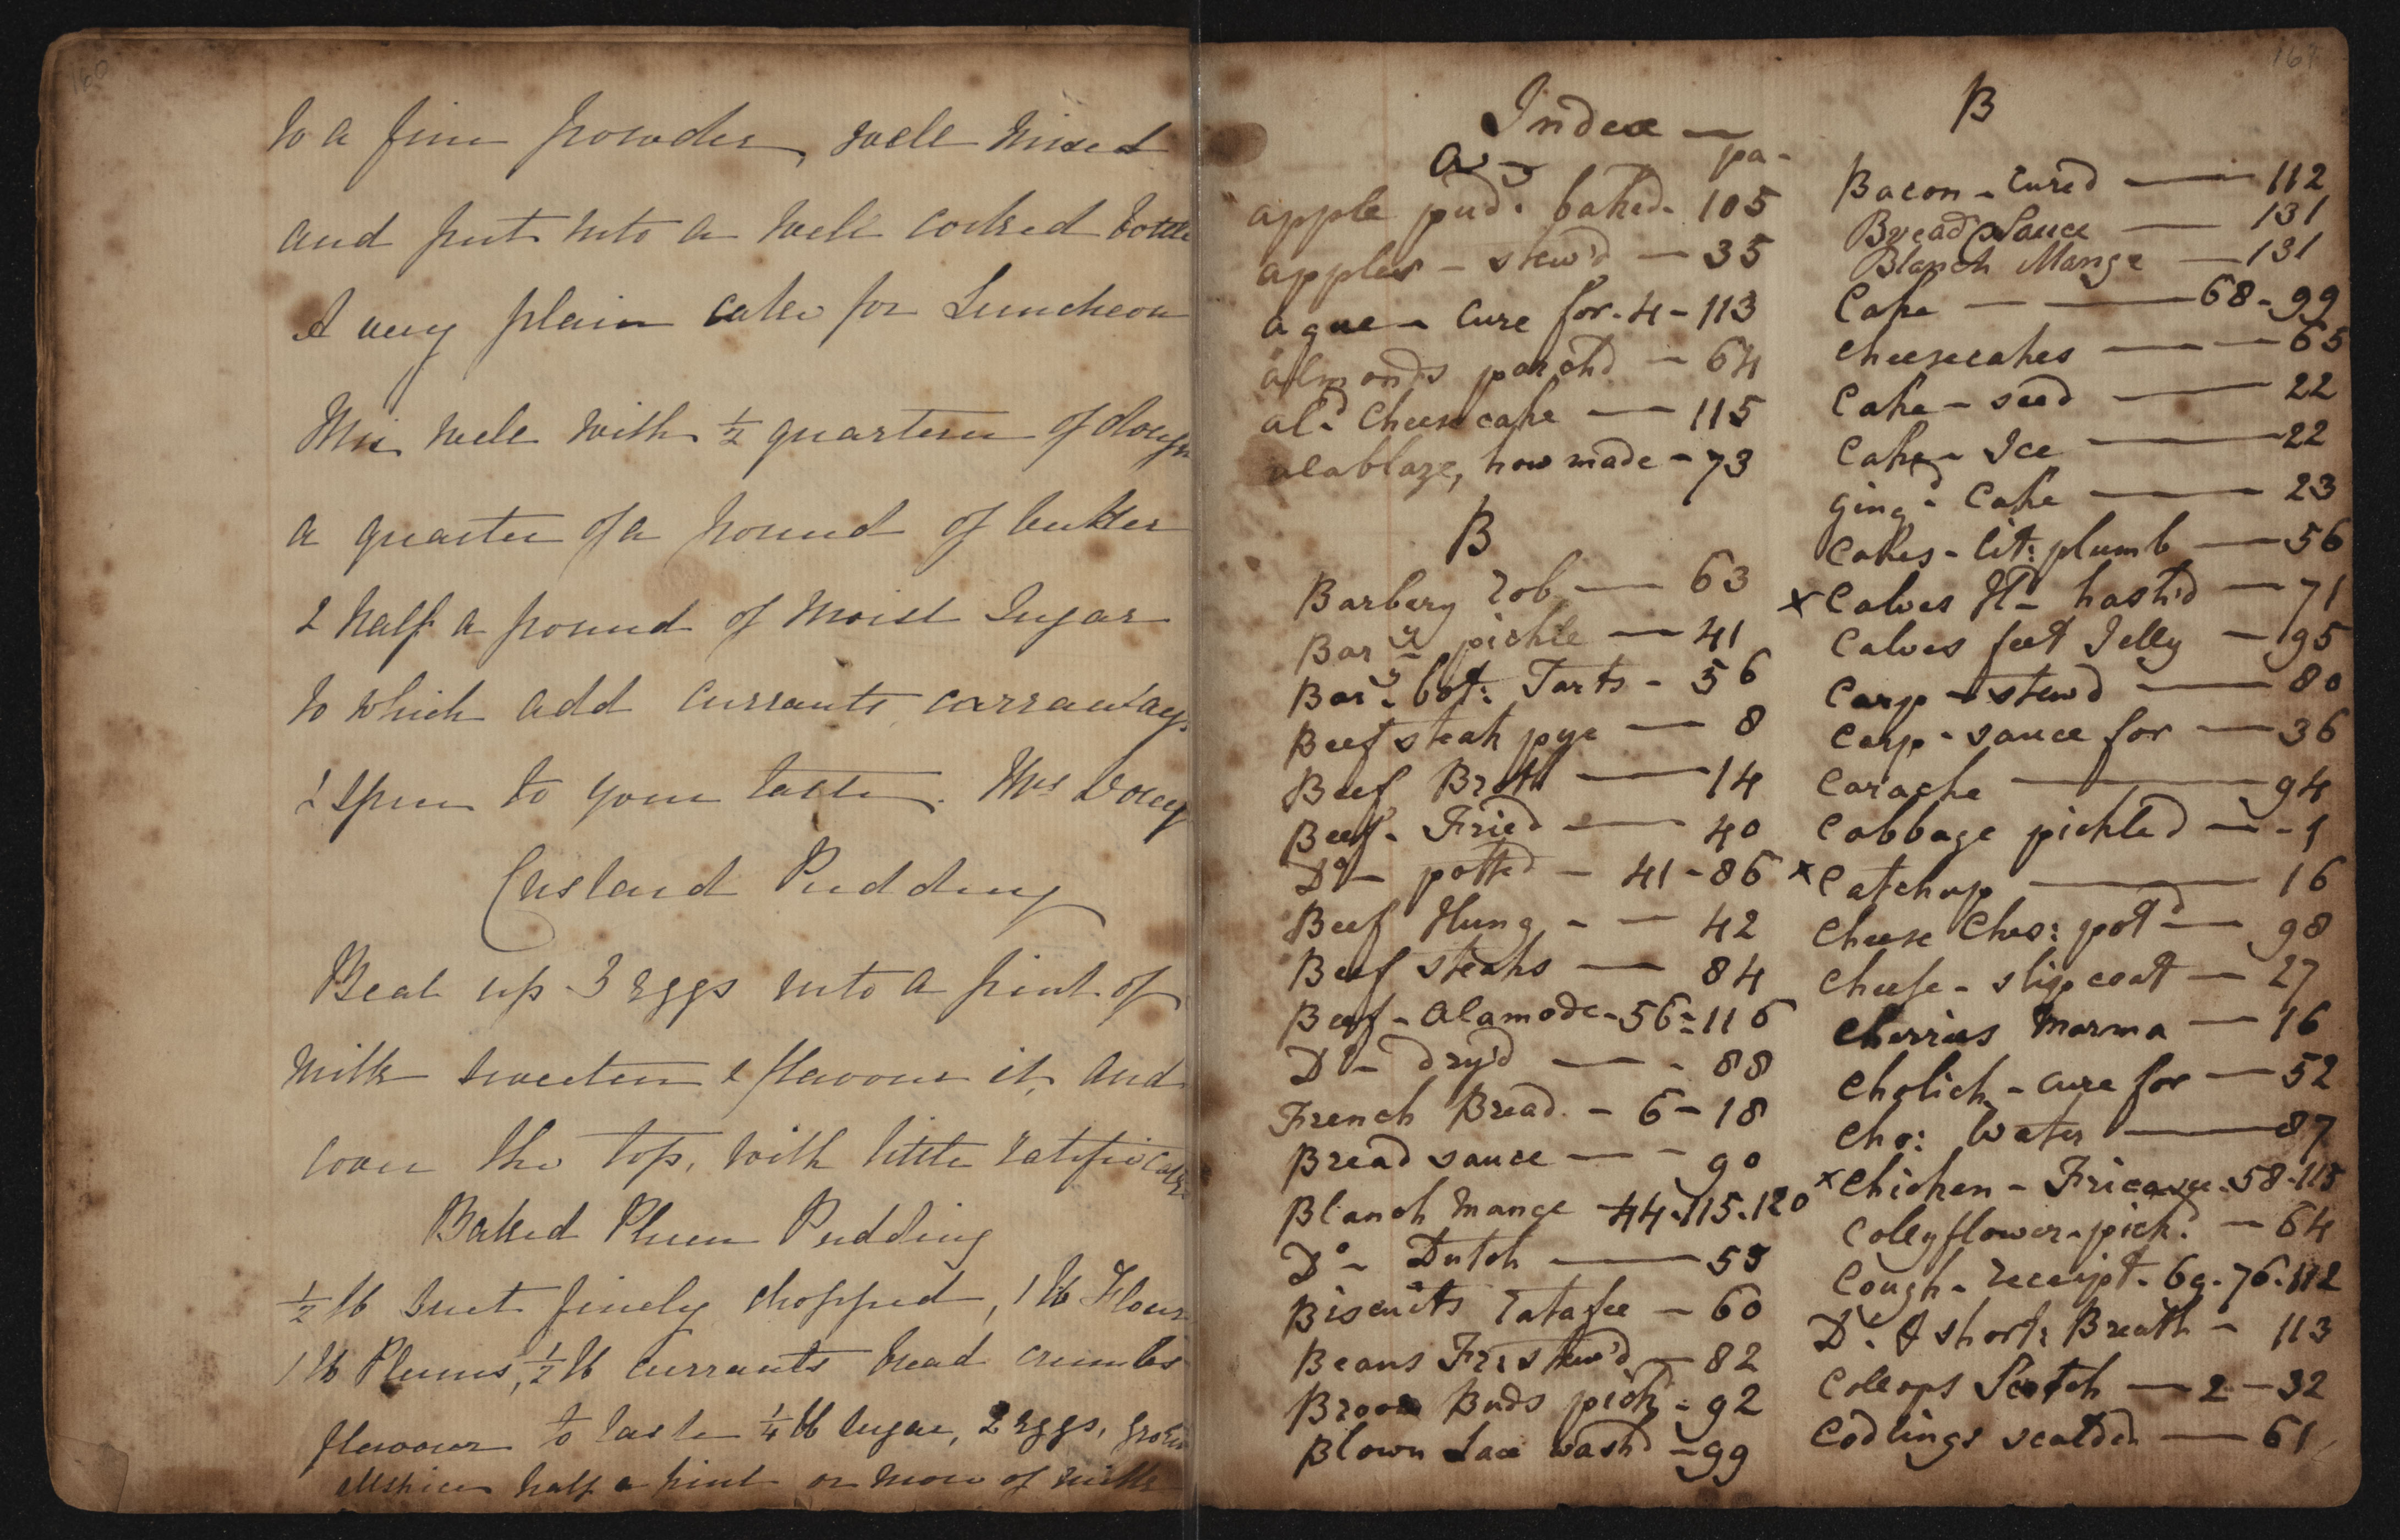 160
to a fine powder, well mixed
and put into a well corked bottle
A very plain cake for Luncheon
Mix well with ½ quartern of dough
a quarter of a pound of butter
& half a pound of moist Sugar
to which add currants carraways
& spice to your taste. Mrs
Custard Pudding
Beat up 3 Eggs into a pint of
Milk sweeten & flavour it, and
cover the top, with little ratifie cakes
Baked Plum Pudding
½ lb Suet finely chopped, 1 lb Flour
1 lb Plums, ½ lb currants bread crumbs
flavour to taste ¼ lb sugar, 2 Eggs, ground
allspice half a pint or more of milk
161
Index —
a — pa-
apple pud: baked - 105
apples - stew'd - 35
ague - Cure for - 4 - 113
almonds parch'd - 64
al:d Cheesecake — 115
alablaze, how made - 73
B
Barbery rob — 63
Bar:y pickle — 41
Bar:y bot: Tarts - 56
Beef steak pye — 8
Beef Broth — 14
Beef - Fried — 40
Do - potted - 41 - 86
Beef Hung - - 42
Beef steaks — 84
Beef - alamode - 56 - 116
Do - dry'd — - 88
French Bread - 6 - 18
Bread sauce — - 90
Blanch mange 44 - 115 - 120
Do - Dutch — 55
Biscuits ratafee — 60
Beans Fr: stew'd — 82
Broom Buds pick'd - 92
Blown Lace wash'd - 99
B
Bacon - Cured — 112
Bread Sauce — 131
Blanch Mange — 131
Cake — 68 - 99
Cheesecakes — 65
Cake - seed — 22
Cake - Ice — 22
ging:d Cake — 23
Cakes - lit: plumb — 56
x Calves Hd - hash'd — 71
Calves feet Jelly — 95
Carp - stew'd — 80
Carp - sauce for — 36
Carache — 94
Cabbage pickled — - 1
x Catchup — 16
Cheese Ches: pot'd — 98
Cheese - slipcoat — 27
Cherries Marma — 16
Cholick - cure for — 52
Cho: Water — 87
x Chicken - Fricasee - 58 - 115
Collyflower - pick'd — 64
Cough - receipt - 69 - 76 - 112
Do & short: Breath - 113
Collops Scotch — 2 — 32
Codlings scalded — 61